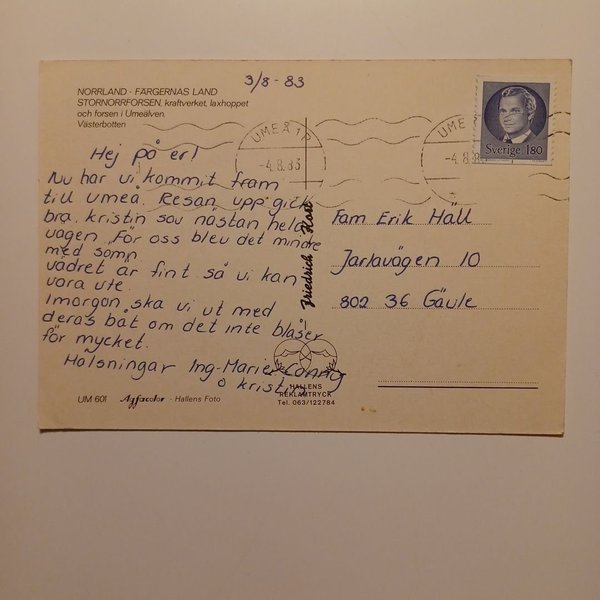 3/8-83
NORRLAND - FÄRGERNAS LAND
STORNORRFORSEN, kraftverket, laxhoppet
och forsen i Umeälven.
Västerbotten
UMEÅ 1
-4.8.83
UMEÅ
-4.8.83
Sverige 180
Hej på er!
Nu har vi kommit fram
till Umeå. Resan upp gick
bra. Kristin sov nästan hela
vägen. För oss blev det mindre
med sömn.
vädret är fint så vi kan
vara ute.
Imorgon ska vi ut med
deras båt om det inte blåser
för mycket.
Hälsningar Ing-Marie Conny
o kristin
Fam Erik Häll
Jarlavägen 10
802 36 Gävle
Friedrich Kost
HALLENS
REKLAMTRYCK
Tel. 063/122784
UM 601 Agfacolor - Hallens Foto